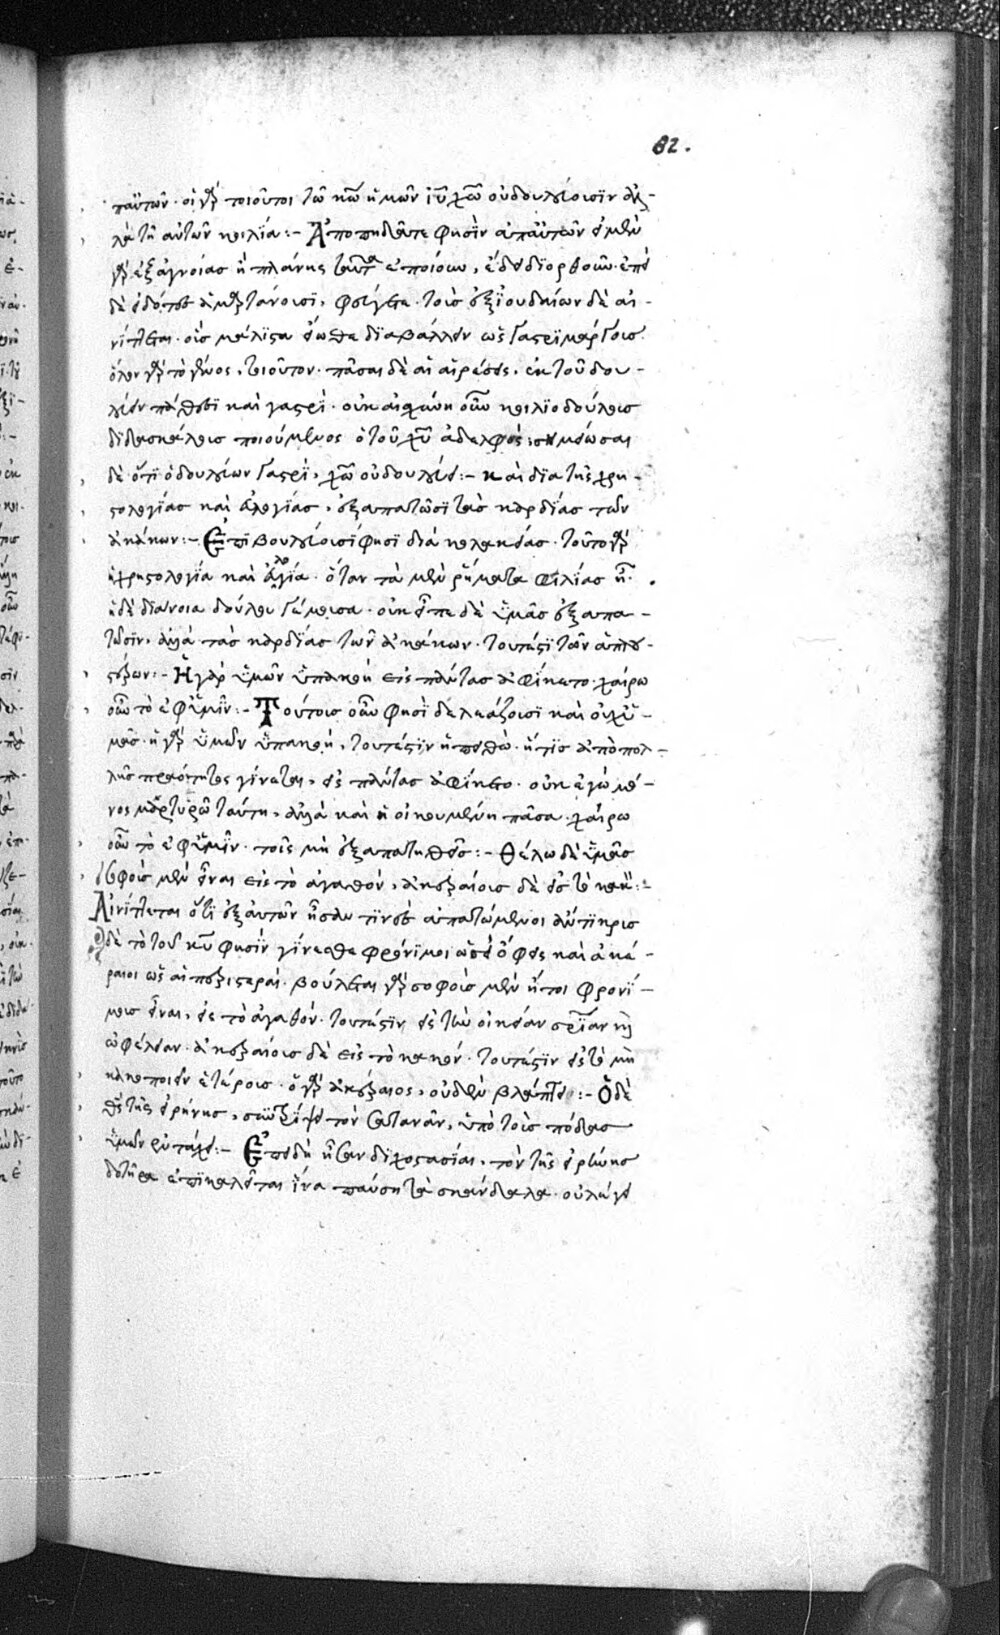 82.
π' αὐτῶν· οἱ γὰρ τοιοῦτοι τῶ κω ἡμῶν ιυ χω οὐ δουλεύουσϊν ἀλ-
λὰ τῆ αὐτῶν κοιλία:- Ἀποπηδᾶτε φησὶν ἀπ' αὐτῶν εἰ μὲν
γὰρ ἐξ ἀγνοίας ἢ πλάνης ταῦτα ἐποίουν, ἔδει διορθοῦν· ἐπεὶ
δὲ εἰδότες ἁμαρτάνουσι, φεύγετε· τοὺς ἐξ ϊουδαίων δὲ αἰ-
νίττεται· οὓς μάλιστα εἴωθε διαβάλλειν ὡς γαστριμάργους·
ὅλον γὰρ τὸ γένος, τοιοῦτον· πᾶσαι δὲ αἱ αἱρέσεις, ἐκ τοῦ δου-
λεύειν πάθεσι καὶ γαστρί· οὐκ αἰσχύνη οὖν κοιλιοδούλους
διδασκάλους ποιούμενος ὁ τοῦ χυ ἀδελφός; σημείωσαι
δὲ ὅτι ὁ δουλεύων γαστρὶ, χω οὐ δουλεύει:- καὶ διὰ τῆς χρη-
στολογίας καὶ εὐλογίας, ἐξαπατῶσι τὰς καρδίας τῶν
ἀκάκων:- Ἐπιβουλεύουσί φησι διὰ κολακείας· τοῦτο γὰρ
ἡ χρηστολογία καὶ εὐλογία· ὅταν τὰ μὲν ῥήματα φιλίας ἦ·
ἡ δὲ διάνοια δόλου γέμουσα· οὐκ εἶπε δὲ ὑμᾶς ἐξαπα-
τῶσιν, ἀλλὰ τὰς καρδίας τῶν ἀκάκων· τουτέστι τῶν ἁπλου-
στέρων:- Ἡ γὰρ ὑμῶν ὑπακοὴ εἰς πάντας ἀφίκετο· χαίρω
οὖν τὸ ἐφ' ὑμῖν:- Τούτους οὖν φησὶ δελεάζουσι καὶ οὐχ ὑ-
μᾶς· ἡ γὰρ ὑμῶν ὑπακοὴ, τουτέστιν ἡ πειθὼ· ἥτις ἀπὸ πολ-
λῆς πραότητος γίνεται, εἰς πάντας ἀφίκετο· οὐκ ἐγὼ μό-
νος μαρτυρῶ ταύτη, ἀλλὰ καὶ ἡ οἰκουμένη πᾶσα· χαίρω
οὖν τὸ ἐφ' ὑμῖν· τοῖς μὴ ἐξαπατηθεῖσι:- Θέλω δὲ ὑμᾶς
σοφοὺς μὲν εἶναι εἰς τὸ ἀγαθόν, ἀκεραίους δὲ εἰς τὸ κακόν:-
Αἰνίττεται ὅτι ἐξ αὐτῶν ἦσάν τινες ἀπατώμενοι ἄντικρυς
δὲ τὸ τοῦ κυ φησὶν γίνεσθε φρόνιμοι ὡσεὶ ὄφεις καὶ ἀκέ-
ραιοι ὡς αἱ περιστεραί· βούλεται γὰρ σοφοὺς μὲν ἤτοι φρονί-
μους εἶναι, εἰς τὸ ἀγαθόν· τουτέστιν εἰς τὴν οἰκείαν σριαν καὶ
ὠφέλειαν· ἀκεραίους δὲ εἰς τὸ κακόν· τουτέστιν εἰς τὸ μὴ
κακοποιεῖν ἑτέρους· ὁ γὰρ ἀκέραιος, οὐδὲν βλάπτει:- Ὁ δὲ
θς τῆς εἰρήνης, συντρίψει τὸν σατανᾶν, ὑπὸ τοὺς πόδας
ὑμῶν ἐν τάχει:- Ἐπειδὴ ἦσαν διχοστασίαι, τὸν τῆς εἰρήνης
δοτῆρα ἐπικαλεῖται ἵνα παύση τὰ σκάνδαλα· οὐ λέγει